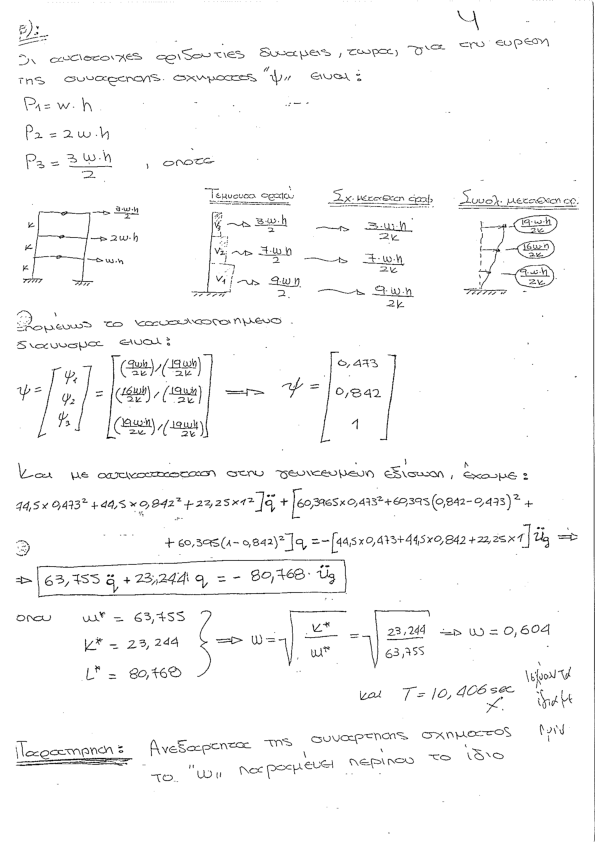 4
β):
Οι αντιστοιχες οριζοντιες δυναμεις, τωρα, για την ευρεση
της συναρτησης σχηματος "ψ" ειναι:
P1 = w·h
P2 = 2w·h
P3 = 3w·h/2 , οποτε
Τεμνουσα οροφων Σχ. μετακιση οροφ. Συνολ. μετακιση ορ.
3·w·h/2 V3 3·w·h/2 3·w·h/2k 19·w·h/2k
K 2w·h V2 7·w·h/2 7·w·h/2k 16w·h/2k
K w·h V1 9·w·h/2 9·w·h/2k 9·w·h/2k
K
Επομενως το κανονικοποιημενο
διανυσμα ειναι:
ψ = [ψ1 ψ2 ψ3] = [(9wh/2k)/(19wh/2k) (16wh/2k)/(19wh/2k) (19wh/2k)/(19wh/2k)] ⟹ ψ = [0,473 0,842 1]
Και με αντικατασταση στην γενικευμενη εξισωση, εχουμε:
44,5×0,473² + 44,5×0,842² + 22,25×1²]q̈ + [60,3965×0,473² + 60,395(0,842-0,473)² +
+ 60,395(1-0,842)²]q = -[44,5×0,473+44,5×0,842 + 22,25×1]Üg ⇒
⇒ 63,755 q̈ + 23,244 q = - 80,768· Üg
οπου m* = 63,755
K* = 23,244 } ⟹ w = √(K*/m*) = √(23,244/63,755) ⇒ w = 0,604
L* = 80,768
και T = 10,406 sec
Παρατηρηση: Ανεξαρτητα της συναρτησης σχηματος
το "w" παραμενει περιπου το ιδιο